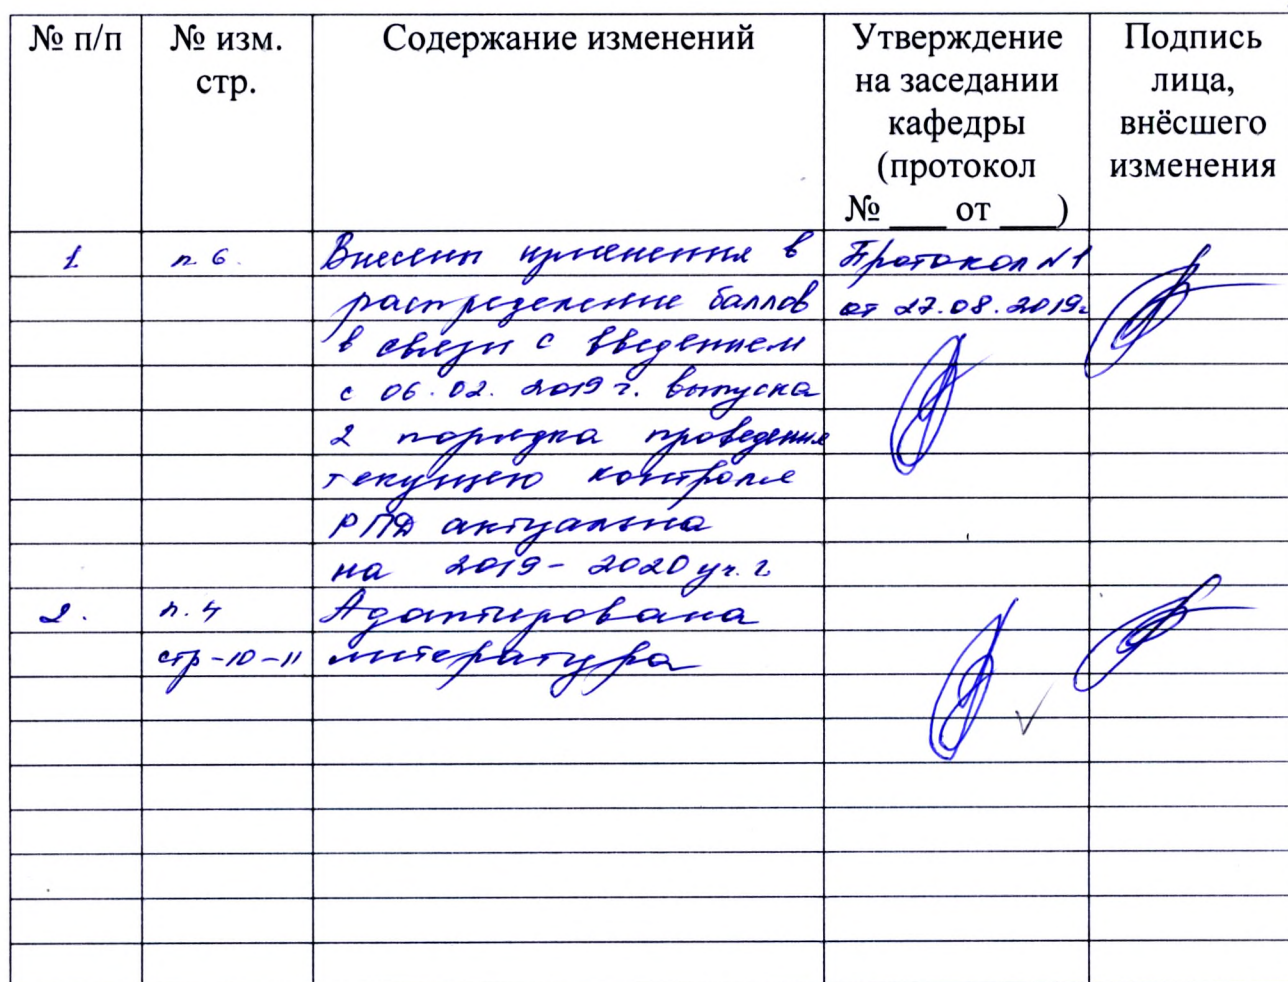 № п/п № изм. стр. Содержание изменений Утверждение на заседании кафедры (протокол № ____ от ____) Подпись лица, внёсшего изменения
1 п. 6. Внесены изменения в Протокол N1
распределение баллов от 27.08.2019г
в связи с введением
с 06.02.2019 г. выпуска
2 порядка проведения
текущего контроля
РПД актуальна
на 2019-2020 уч. г
2. п. 4 Адаптирована
стр-10-11 литература